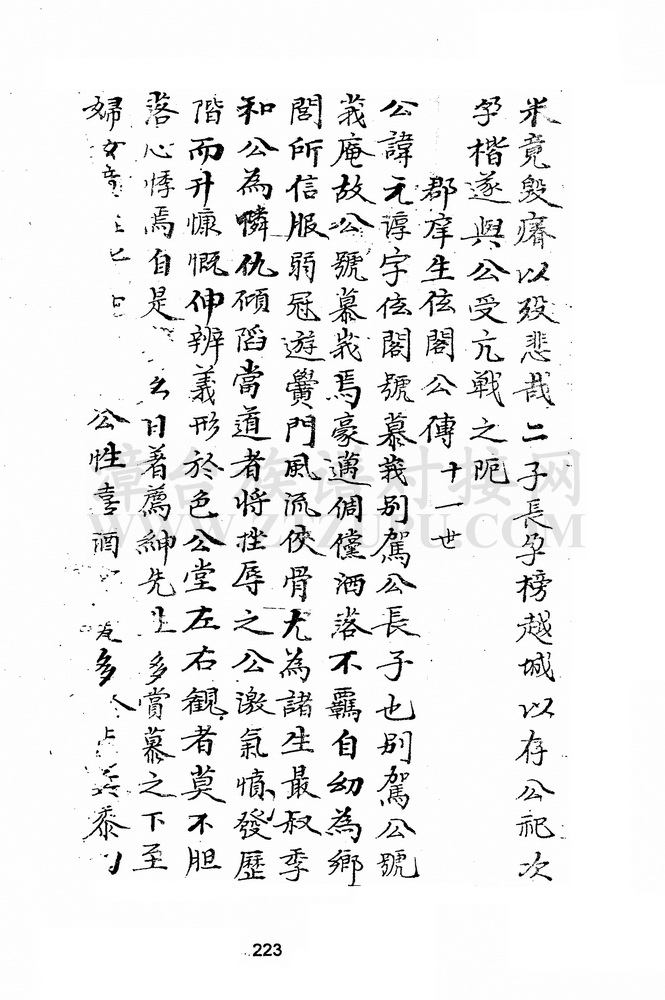 米竟毀瘠以歿悲哉二子長孕榜越城以存公祀次
孕楷遂與公受亢戰之阨
郡庠生伭閣公傳 十一世
公諱元諄字伭閣號慕莪別駕公長子也別駕公號
莪庵故公號慕莪焉豪邁倜儻洒落不羈自幼為鄉
閭所信服弱冠遊黌門風流俠骨尤為諸生最叔季
和公為憐仇碩蹈當道者將挫辱之公激氣憤發歷
階而升慷慨伸辨義形於色公堂左右觀者莫不胆
落心悸焉自是 日著薦紳先生多賞慕之下至
婦女童 公性喜酒 多 黍
223